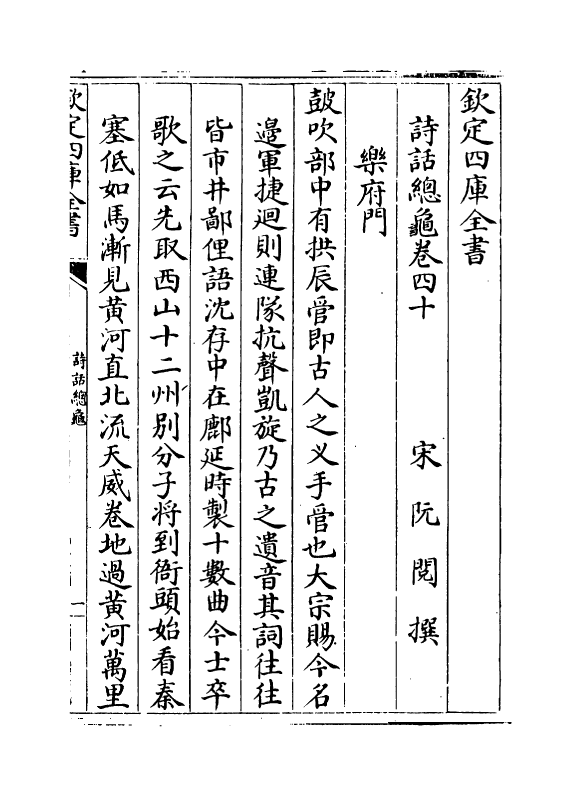 欽定四庫全書
詩話總龜卷四十
宋阮閱撰
樂府門
鼓吹部中有拱辰管即古人之义手管也大宗賜今名
邉軍捷迴則連隊抗聲凱旋乃古之遺音其詞徃徃
皆市井鄙俚語沈存中在鄜延時製十數曲今士卒
歌之云先取西山十二州别分子將到衙頭始看秦
塞低如馬漸見黄河直北流天威卷地過黄河萬里
欽定四庫全書
詩話總龜
一